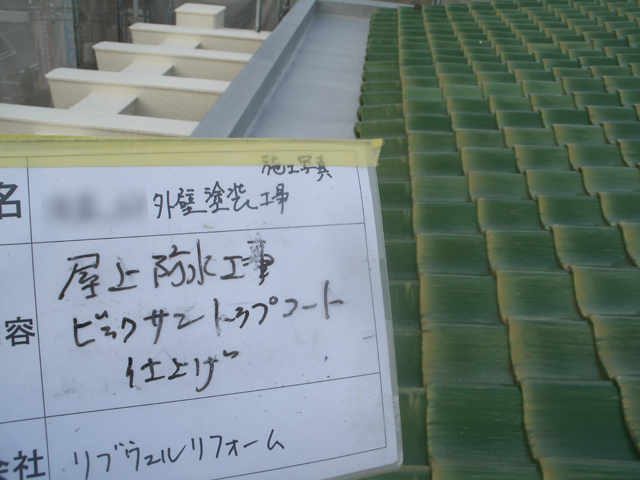 施工写真
名 外壁塗装工事
屋上防水工事
容 ビックサントップコート
仕上げ
会社 リブウェルリフォーム